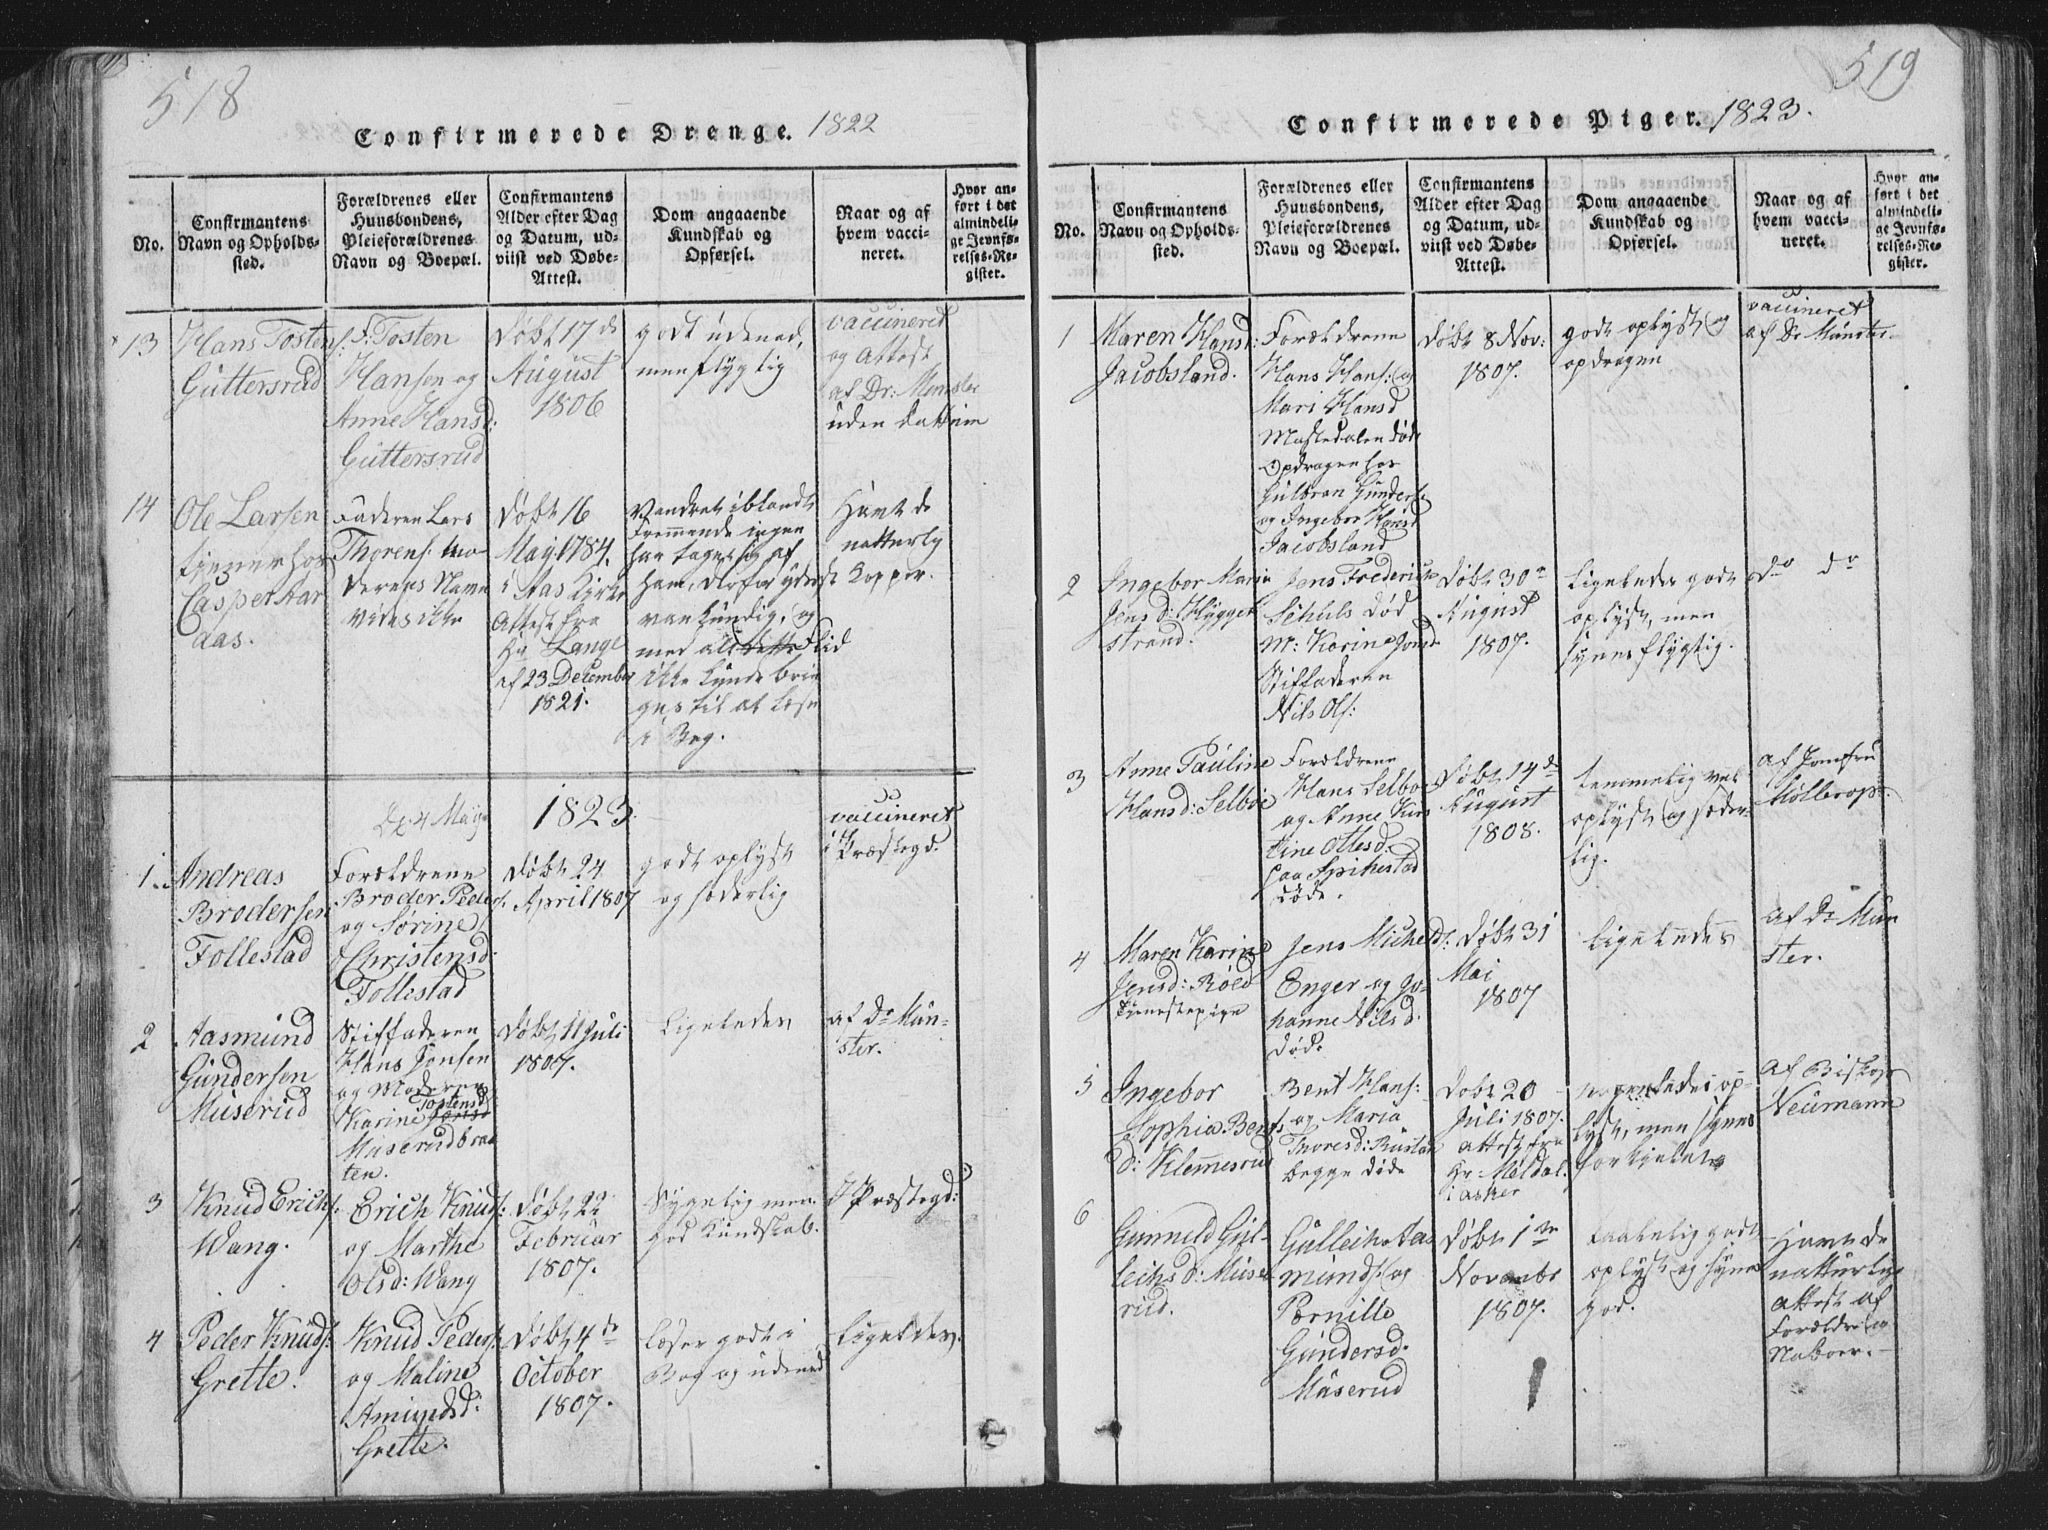 518
Confirmerede Drenge. 1822
No.
Confirmantens
Navn og Opholds-
sted.
Forældrenes eller
Huusbondens,
Pleieforældrenes
Navn og Boepæl.
Confirmantens
Alder efter Dag
og Datum, ud-
viist ved Døbe-
Attest.
Dom angaaende
Kundskab og
Opførsel.
Naar og af
hvem vacci-
neret.
Hvor an-
ført i det
almindeli-
ge Jevnfø-
relses-Re-
gister.
13
Hans Tostens:
Guttersrud
F: Tosten
Hansen og
Anne Hansd:
Guttersrud
Døbt 17de
August
1806
godt udenad,
men flygtig
vaccineret
og Attest
af Dr: Münster
uden Dattum
14
Ole Larsen
tjener hos
Casper Aar
aas.
Faderen Lars
Thorens: Mo-
derens Navn
vides ikke
Døbt 16
Maji 1784.
i Aas Kirke
Attest fra
Hr Lange
af 23 December
1821.
Vandret iblandt
fremmende ingen
har taget sig af
ham, derfor yderst
van kundig, og
med al Flid
ikke kunde brin
ges til at læse
i Bog.
Havt de
natturly
Kopper.
De 4 May 1823.
1.
Andreas
Brodersen
Follestad
Forældrene
Broder Peders:
og Sørine
Christensd:
Follestad
Døbt 24
April 1807
godt oplyst
og sæderlig
vaccineret
i Præstegd:
2
Aasmund
Gundersen
Muserud
Stiffaderen
Hans Jonsen
og Moderen
Karine Tostensd
Muserudbraa
ten.
Døbt 11 Juli
1807.
Ligeledes
af Dr Mün-
ster.
3
Knud Erichs:
Wang.
Erich Knuds:
og Marthe
Olsd: Wang
Døbt 22
Februar
1807.
Sygelig men
god Kundskab.
I Præstegd:
4
Peder Knuds:
Grette.
Knud Peders:
og Maline
Amundsd:
Grette.
Døbt 4de
October
1807.
Læser godt i
Bog og udenad
Ligeledes.
519
Confirmerede Piger. 1823.
No.
Confirmantens
Navn og Opholds-
sted.
Forældrenes eller
Huusbondens,
Pleieforældrenes
Navn og Boepæl.
Confirmantens
Alder efter Dag
og Datum, ud-
viist ved Døbe-
Attest.
Dom angaaende
Kundskab og
Opførsel.
Naar og af
hvem vacci-
neret.
Hvor an-
ført i det
almindeli-
ge Jevnfø-
relses-Re-
gister.
1
Maren Hansd:
Jacobsland.
Forældrene
Hans Hans: og
Mari Hansd
Mastedalen død
Opdragen hos
Gulbran Gunders:
og Ingebor Hansd
Jacobsland
Døbt 8 Nov:
1807.
godt oplyst og
opdragen
vaccineret
af Dr Münster.
2
Ingebor Maria
Jens d: Hygget
strand.
Jens Frederich
Schuls død
M: Karine Jonsd
Stiffaderen
Nils Ols:
Døbt 30te
August
1807.
Ligeledes godt
oplyst, men
synes flygtig.
do do
3
Anne Pauline
Hansd: Selbøe
Forældrene
Hans Selboe
og Anne Kirs
tine Ottesd:
paa Spikestad
døde.
Døbt 14de
August
1808.
temmelig vel
oplyst og sæder-
lig.
af Jomfru
Møllerop.
4
Maren Karine
Jensd: Röed
Tjenestepige
Jens Michels:
Enger og Jo-
hanne Nilsd.
død.
Døbt 31
Mai
1807
Ligeledes
af Dr Mün
ster.
5
Ingebor
Sophia Bents
d: Klemesrud
Bent Hans:
og Maria
Thoresd: Rustan
begge døde
Døbt 20
Juli 1807.
attest fra
Hr: Meldal
i Asker
nogenledes op-
lyst, men synes
forkjelet
af Biskop
Neumann
6
Gunneld Gul-
leiks d: Muse
rud.
Gulleik Aas
munds: og
Pernille
Gundersd.
Muserud
Døbt 1te
Novembr
1807.
taalelig godt
oplyst og synes
god.
Havt de
natturlige
attest af
Forældre og
Naboer.